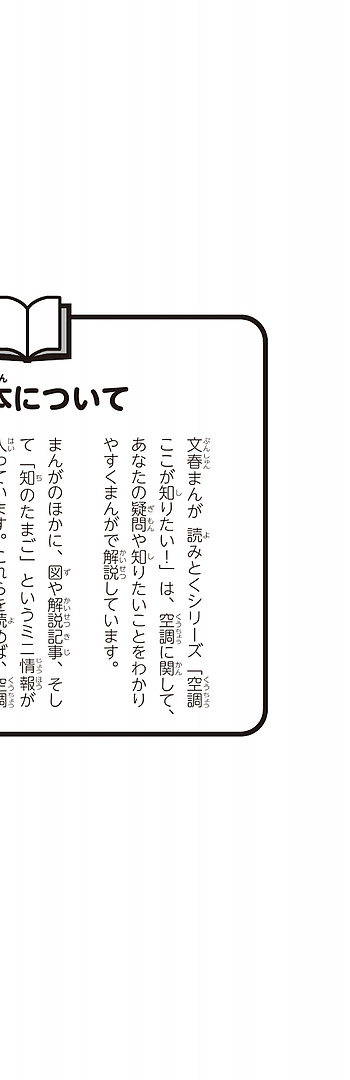 本について
文春まんが 読みとくシリーズ「空調
ここが知りたい!」は、空調に関して、
あなたの疑問や知りたいことをわかり
やすくまんがで解説しています。
まんがのほかに、図や解説記事、そし
て「知のたまご」というミニ情報が
入っています。これらを読めば、空調